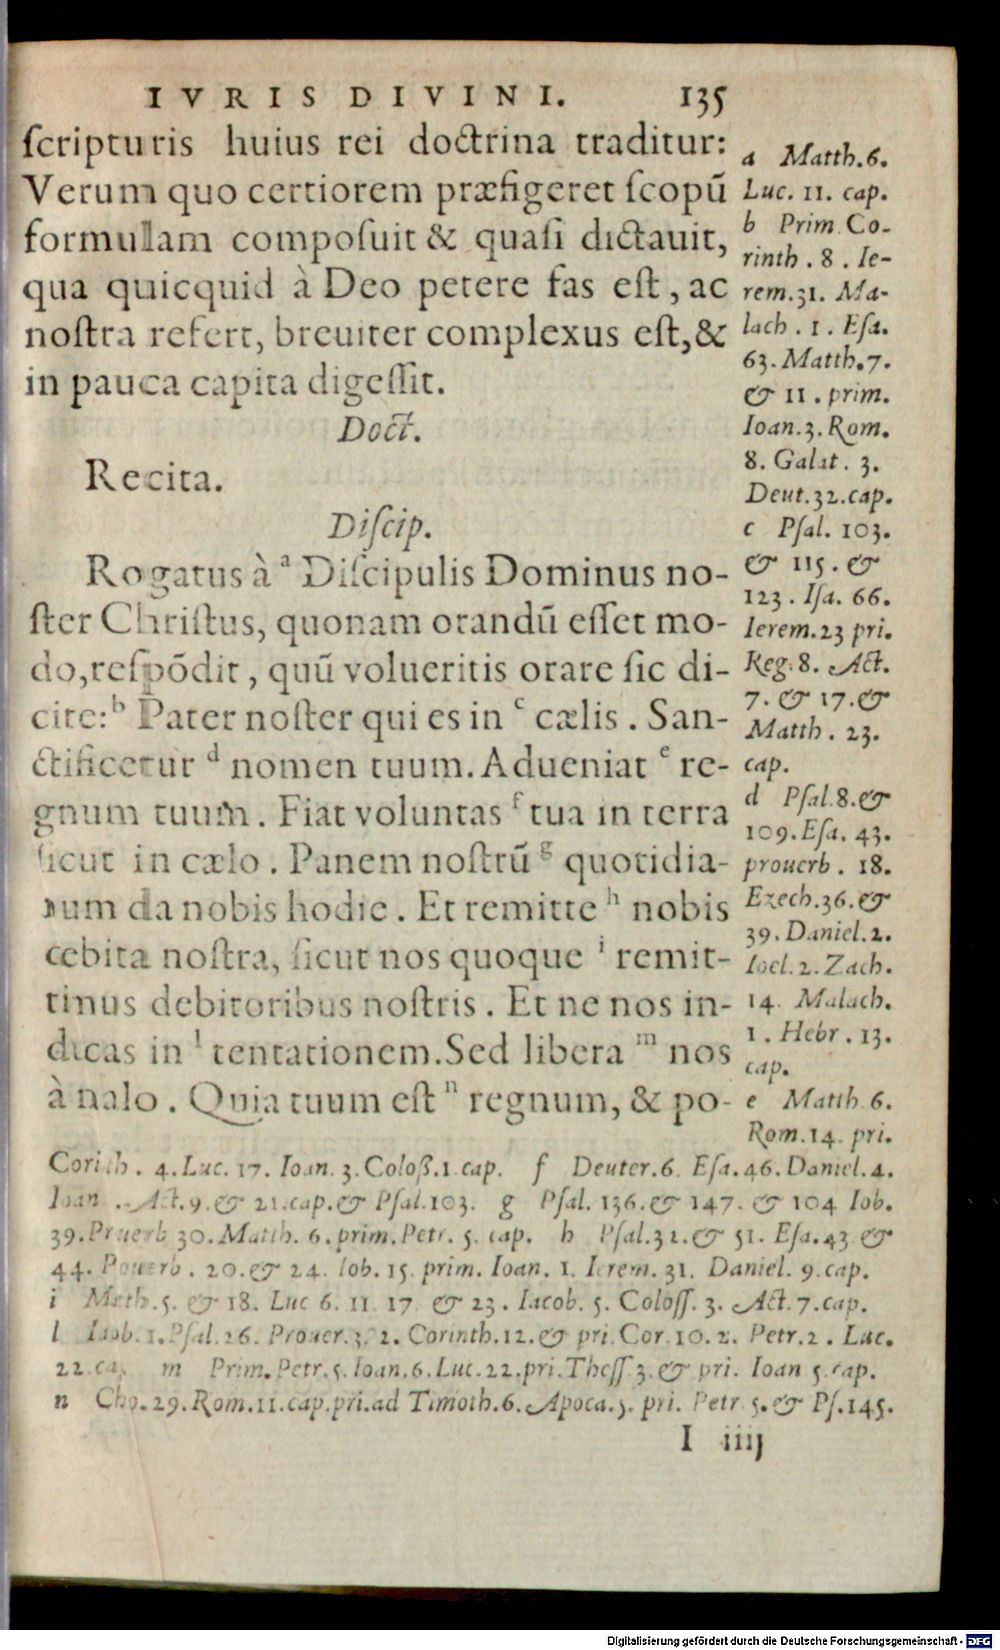 IVRIS DIVINI. 135
ſcripturis huius rei doctrina traditur:
Verum quo certiorem præfigeret ſcopũ
formulam compoſuit & quaſi dictauit,
qua quicquid à Deo petere fas eſt, ac
noſtra refert, breuiter complexus eſt, &
in pauca capita digeſſit.
Doct.
Recita.
Diſcip.
Rogatus à a Diſcipulis Dominus no-
ſter Chriſtus, quonam orandũ eſſet mo-
do, reſpõdit, quũ volueritis orare ſic di-
cite: b Pater noſter qui es in c cælis. San-
ctificetur d nomen tuum. Adueniat e re-
gnum tuum. Fiat voluntas f tua in terra
ſicut in cælo. Panem noſtrũ g quotidia-
num da nobis hodie. Et remitte h nobis
debita noſtra, ſicut nos quoque i remit-
timus debitoribus noſtris. Et ne nos in-
ducas in l tentationem. Sed libera m nos
à malo. Quia tuum eſt n regnum, & po-
a Matth.6.
Luc. 11. cap.
b Prim Co-
rinth. 8. Ie-
rem.31. Ma-
lach. 1. Eſa.
63. Matth.7.
& 11. prim.
Ioan.3. Rom.
8. Galat. 3.
Deut.32.cap.
c Pſal. 103.
& 115. &
123. Iſa. 66.
Ierem.23 pri.
Reg.8. Act.
7. & 17. &
Matth. 23.
cap.
d Pſal.8. &
109. Eſa. 43.
prouerb. 18.
Ezech.36. &
39. Daniel.2.
Ioel.2. Zach.
14. Malach.
1. Hebr. 13.
cap.
e Matth 6.
Rom.14. pri.
Corinth. 4. Luc. 17. Ioan. 3. Coloß.1 cap. f Deuter.6. Eſa.46. Daniel.4.
Ioan Act.9. & 21.cap. & Pſal.103. g Pſal. 136. & 147. & 104 Iob.
39. Prouerb 30. Matth. 6. prim. Petr. 5. cap. h Pſal.32. & 51. Eſa.43 &
44. Prouerb. 20. & 24. Iob. 15. prim. Ioan. 1. Ierem. 31. Daniel. 9.cap.
i Matth.5. & 18. Luc 6. 11 17 & 23. Iacob. 5. Coloſſ. 3. Act.7.cap.
l Iob.1. Pſal.26. Prouer.3. 2. Corinth.12. & pri. Cor.10. 2. Petr.2. Luc.
22.cap m Prim. Petr.5. Ioan.6. Luc.22. pri. Theſſ 3. & pri. Ioan 5.cap.
n 29. Rom.11.cap. pri.ad Timoth.6. Apoca.5. pri. Petr 5. & Pſ.145.
I iiij
Digitalisierung gefördert durch die Deutsche Forschungsgemeinschaft - DFG